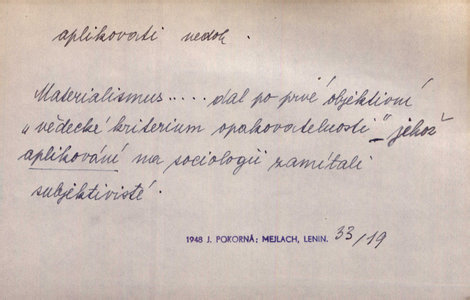 aplikovati nedok.
Materialismus..... dal po prvé objektivní
„vědecké kriterium opakovatelnosti‟ jehož
aplikování na sociologii zamítali
subjektivisté.
1948 J. POKORNÁ; MEJLACH, LENIN. 33/19